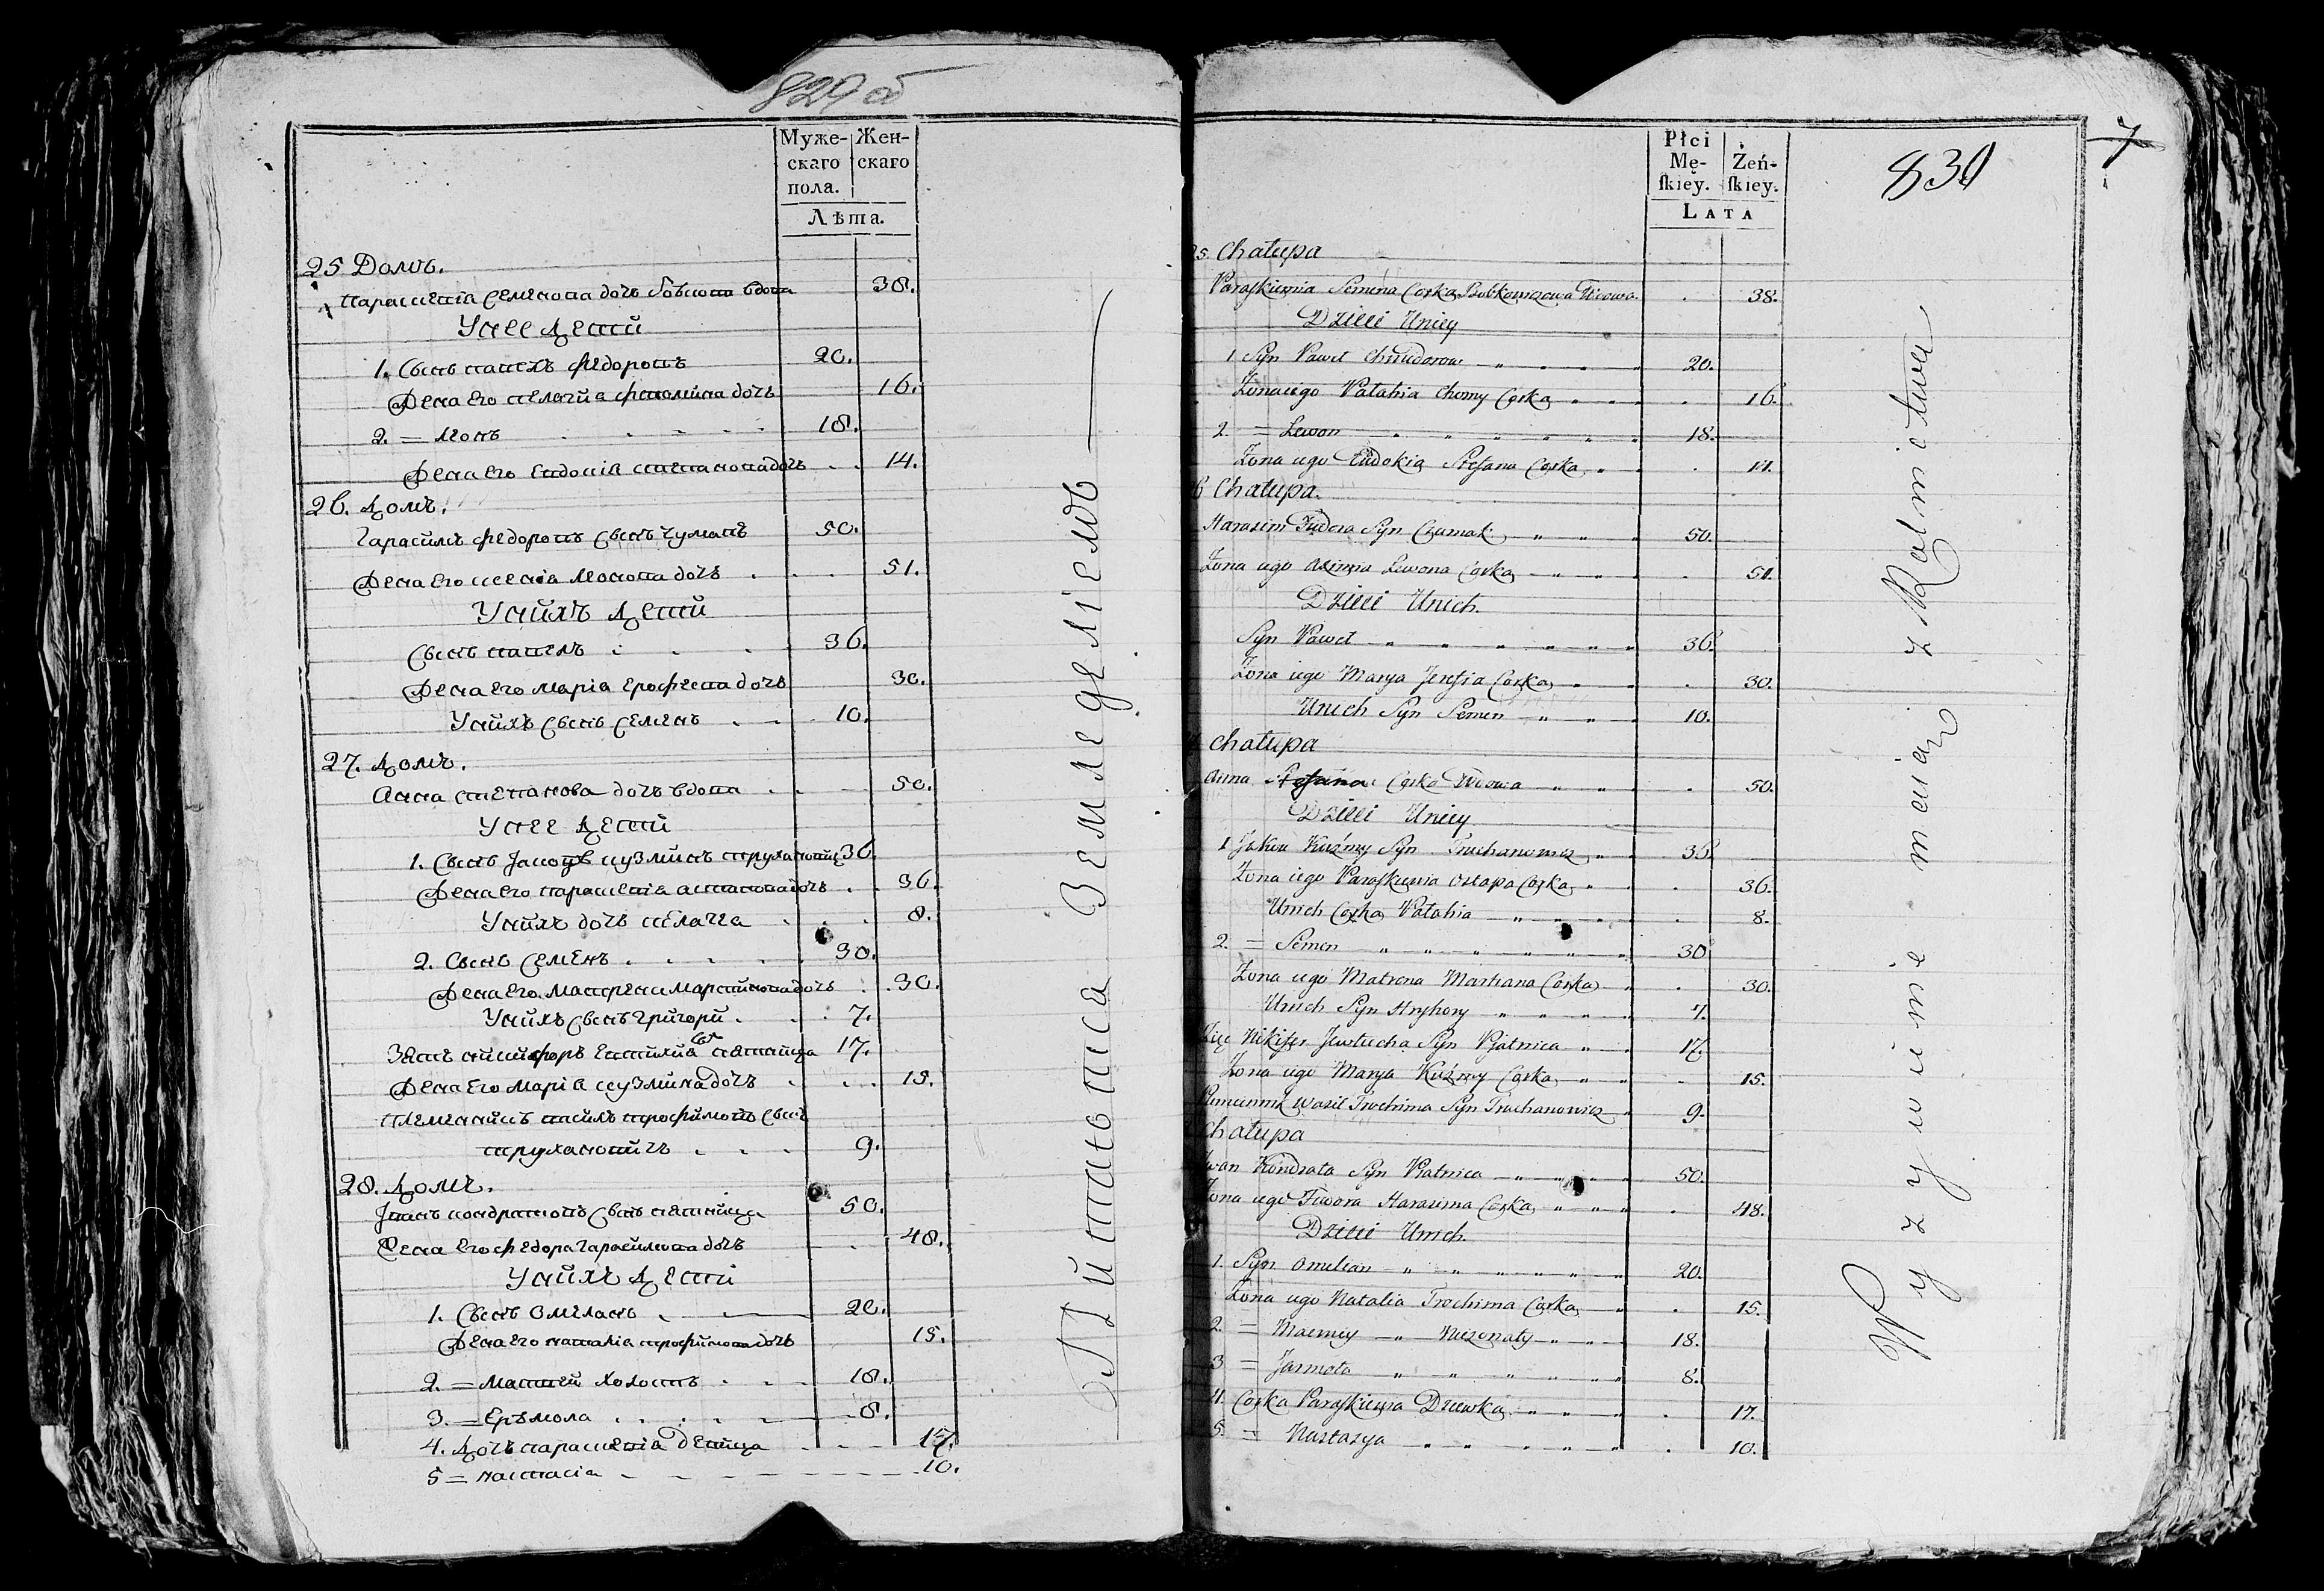 829 об
Муже- Жен-
скаго скаго
пола.
Лѣта.
25 Домъ.
Параскевiа Семенова дочь вдова 38.
У нее дети
1. Сынъ Павелъ Федоровъ 20.
Жена его Пелагия Фомина дочь 16.
2. = Леонъ 18.
Жена его Евдокiа Степанова дочь 14.
26. Домъ.
Гарасимъ Федоровъ сынъ Чумакъ 50.
Жена его Ксенiа Леонова дочь 51.
У нихъ дети
Сынъ Павелъ 36.
Жена его Марiа Ерофеева дочь 30.
У нихъ сынъ Семенъ 10.
27. Домъ.
Анна Степанова дочь вдова 50.
У нее дети
1. Сынъ Iаковъ Кузминъ Труханович 36.
Жена его Параскевiа Астапова дочь 36.
У нихъ дочь Пелагеа 8.
2. Сынъ Семенъ 30.
Жена его Матрена Мартинова дочь 30.
У нихъ сынъ Григори 7.
Зять Никифоръ Евтихиев сын Пятница 17.
Жена его Марiа Кузмина дочь 15.
Племянникъ Василъ Трофимовъ сынъ
Труханович 9.
28. Домъ.
Iванъ Кондратовъ сынъ Пятница 50.
Жена его Федора Гарасимова дочь 48.
У нихъ дети
1. Сынъ Омелянъ 20.
Жена его Наталiа Трофимова дочь 15.
2. = Матвей холостъ 18.
3. = Ерѣмола 8.
4. Дочь Параскевiа девица 17.
5 = Настасiа 10.
Питаются Земледелiемъ
Płci
Mę- Żeń-
ſkiey. ſkiey.
LATA
830
7
5. Chałupa
Paraſkiewia Semena Corka Bobkowiczowa Wdowa 38.
Dzieci Uniey
1 Syn Paweł Chwiedorow 20.
Zona iego Pałahia Chomy Corka 16.
2. = Lewon 18.
Zona iego Eudokia Stefana Corka 14.
6 Chałupa.
Harasim Fiedora Syn Czumak 50.
Zona iego Axinia Lewona Corka 51.
Dzieci Unich.
Syn Paweł 36.
Zona iego Marya Jerofia Corka 30.
Unich Syn Semen 10.
Chałupa
Anna Stefana Corka Wdowa 50.
Dzieci Uniey
1 Jakow Kuźmy Syn Truchanowicz 36.
Zona iego Paraſkiewia Ostapa Corka 36.
Unich Corka Pałahia 8.
2. = Semen 30
Zona iego Matrona Marciana Corka 30.
Unich Syn Hryhory 7.
Zięć Nikifor Jewtucha Syn Pjatnica 17.
Zona iego Marya Kuźmy Corka 15.
Plemiennik Wasil Trochima Syn Truchanowicz 9.
Chałupa
Iwan Kondrata Syn Pjatnica 50.
Zona iego Fiedora Harasima Corka 48.
Dzieci Unich.
1. Syn Omelian 20.
Zona iego Natalia Trochima Corka 15.
2. = Maciey Niezonaty 18.
3 = Jarmoła 8.
4. Corka Paraſkiewia Dziewka 17.
5. = Nastazya 10.
Wyzywienie maią z Rolnictwa